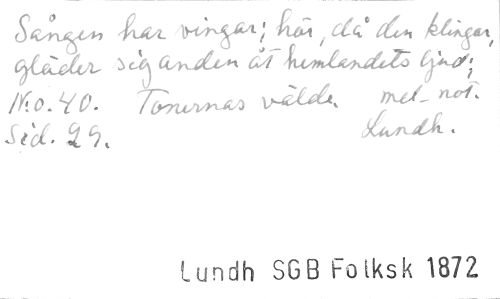 Sången har vingar; hör, då den klingar,
gläder sig anden åt hemlandets ljud;
N:o. 40. Tonernas välde. mel. not.
Sid. 29. Lundh.
Lundh SGB Folksk 1872